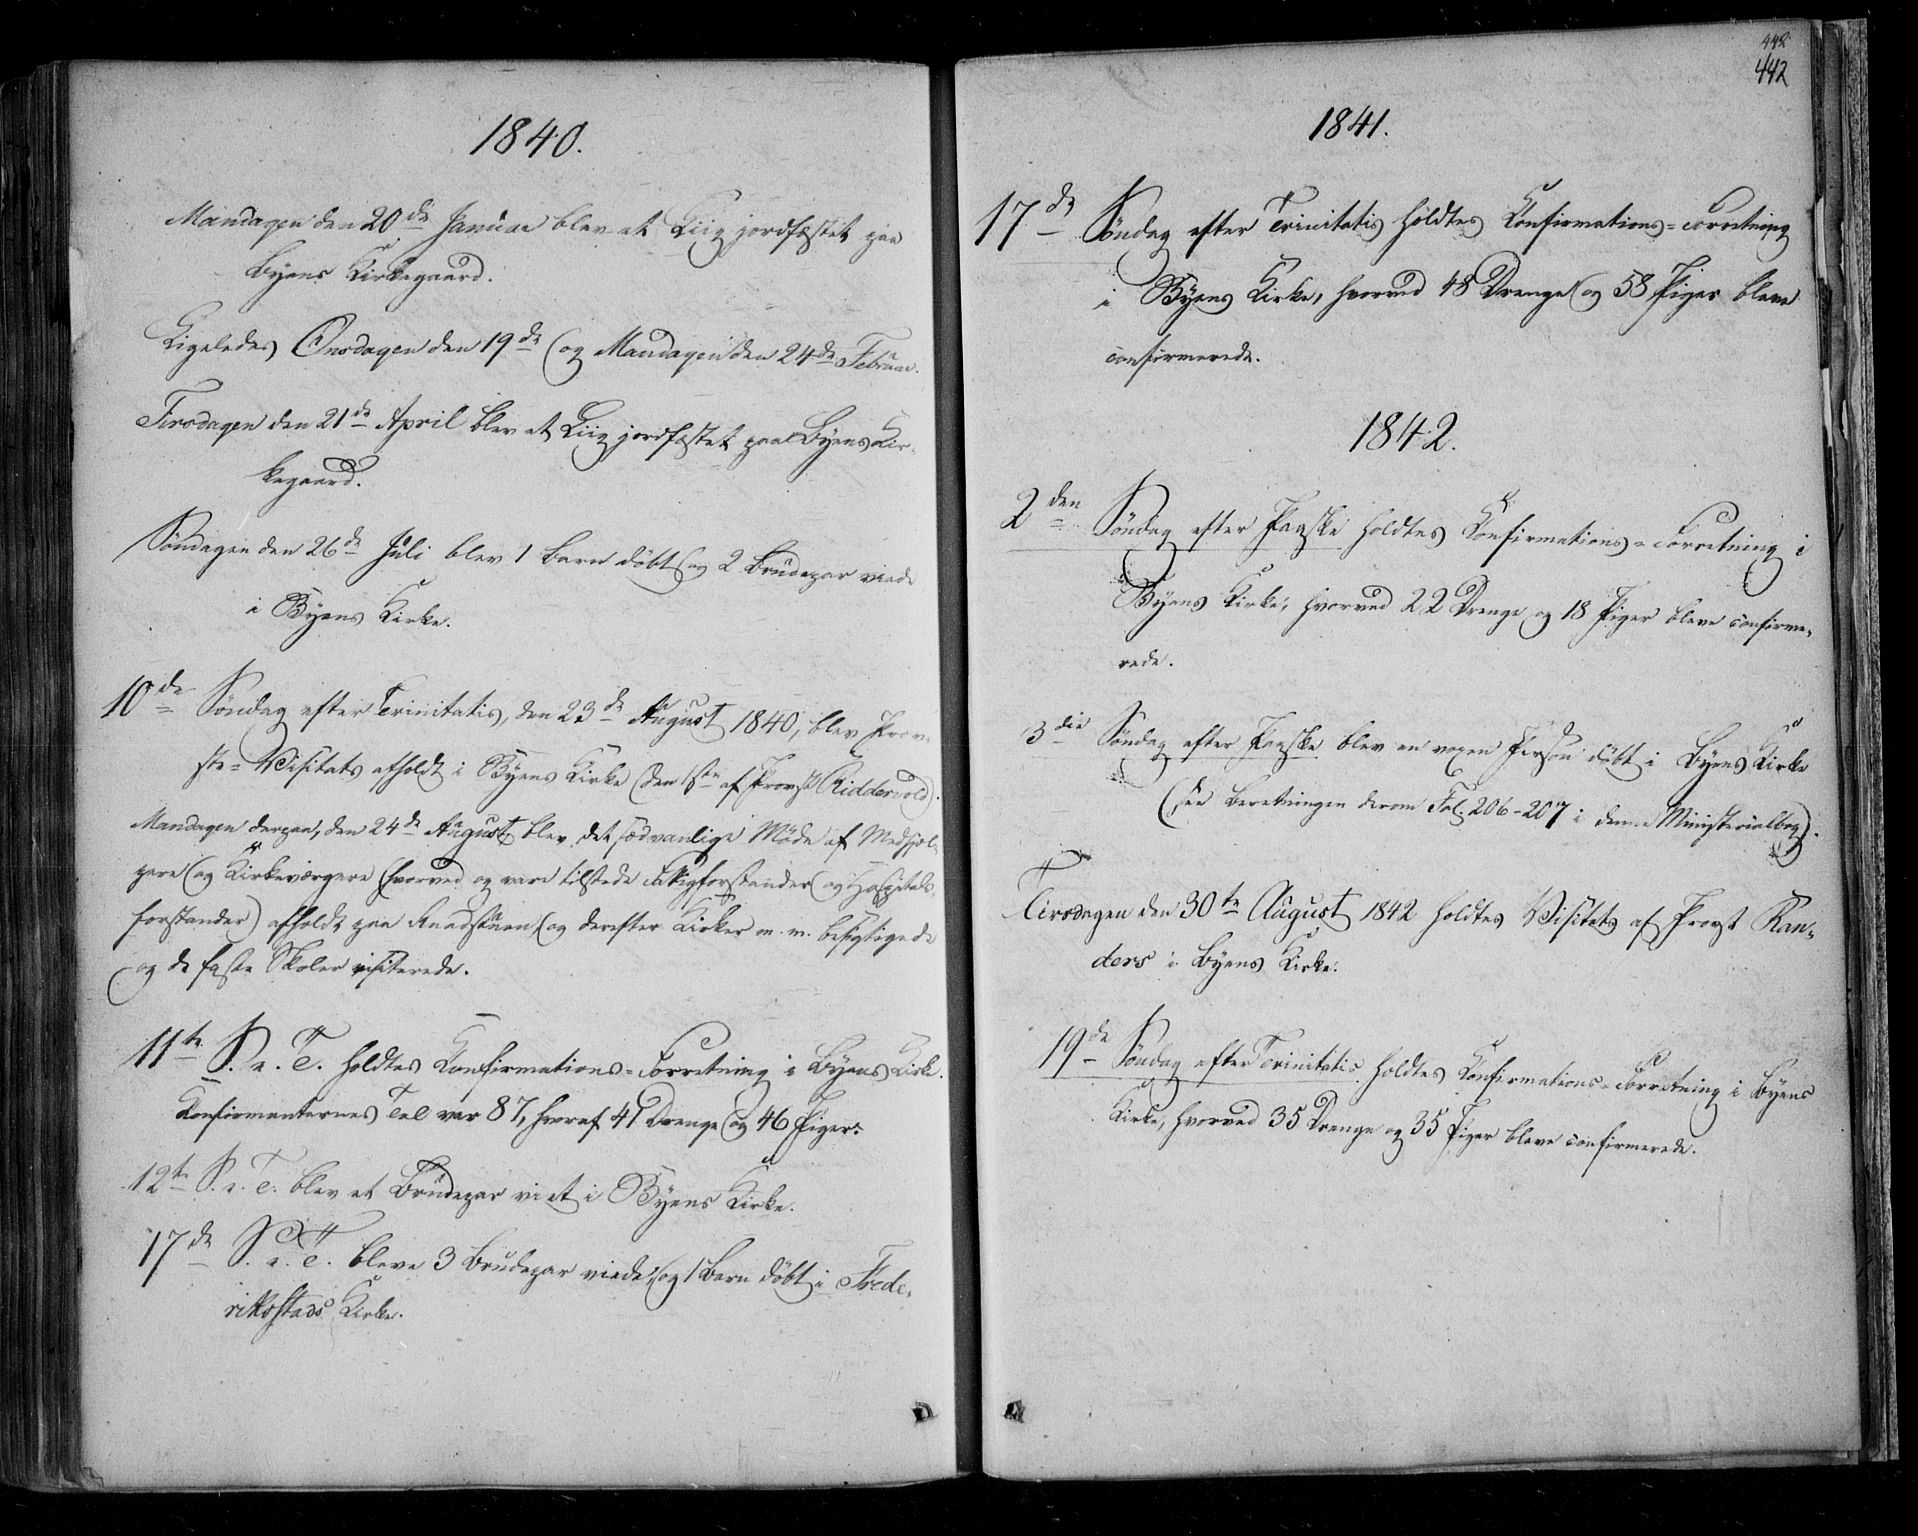 1840.
Mandagen den 20de Januar blev et Liig jordfæstet paa
Byens Kirkegaard.
Ligeledes Onsdagen den 19de og Mandagen den 24de Februar.
Tirsdagen den 21de April blev et Liig jordfæstet paa Byens Kir-
kegaard.
Søndagen den 26de Juli blev 1 Barn döbt og 2 Brudepar viede
i Byens Kirke.
10de Søndag efter Trinitatis, den 23de August 1840, blev Prov-
ste-Visitats afholdt i Byens Kirke (den 1ste af Provst Riddervold).
Mandagen derpaa, den 24de August blev det sædvanlige Möde af Medhjæl-
pere og Kirkeværgere (hvorved og vare tilstede Fattigforstander og Hospitals-
forstander) afholdt paa Raadstuen, og derefter Kirker m. m. besigtigede
og de faste Skoler visiterede.
11te S. e. T. holdtes Konfirmations-Forretning i Byens Kirke.
Konfirmanternes Tal var 87, hvoraf 41 Drenge og 46 Piger.
12te S. e. T. blev et Brudepar viet i Byens Kirke.
17de S. e. T. bleve 3 Brudepar viede, og 1 Barn döbt i Frede-
rikstads Kirke.
442
442
1841.
17de Søndag efter Trinitatis holdtes Konfirmations-Forretning
i Byens Kirke, hvorved 48 Drenge og 58 Piger bleve
confirmerede.
1842.
2den Søndag efter Paaske holdtes Konfirmations-Forretning i
Byens Kirke, hvorved 22 Drenge og 18 Piger bleve confirme-
rede.
3die Søndag efter Paaske blev en voxen Person döbt i Byens Kirke
(see Beretningen derom Fol. 206-207 i denne Ministerialbog).
Tirsdagen den 30te August 1842 holdtes Visitats af Provst Ran-
ders i Byens Kirke.
19de Søndag efter Trinitatis holdtes Konfirmations-Forretning i Byens
Kirke, hvorved 35 Drenge og 35 Piger bleve confirmerede.